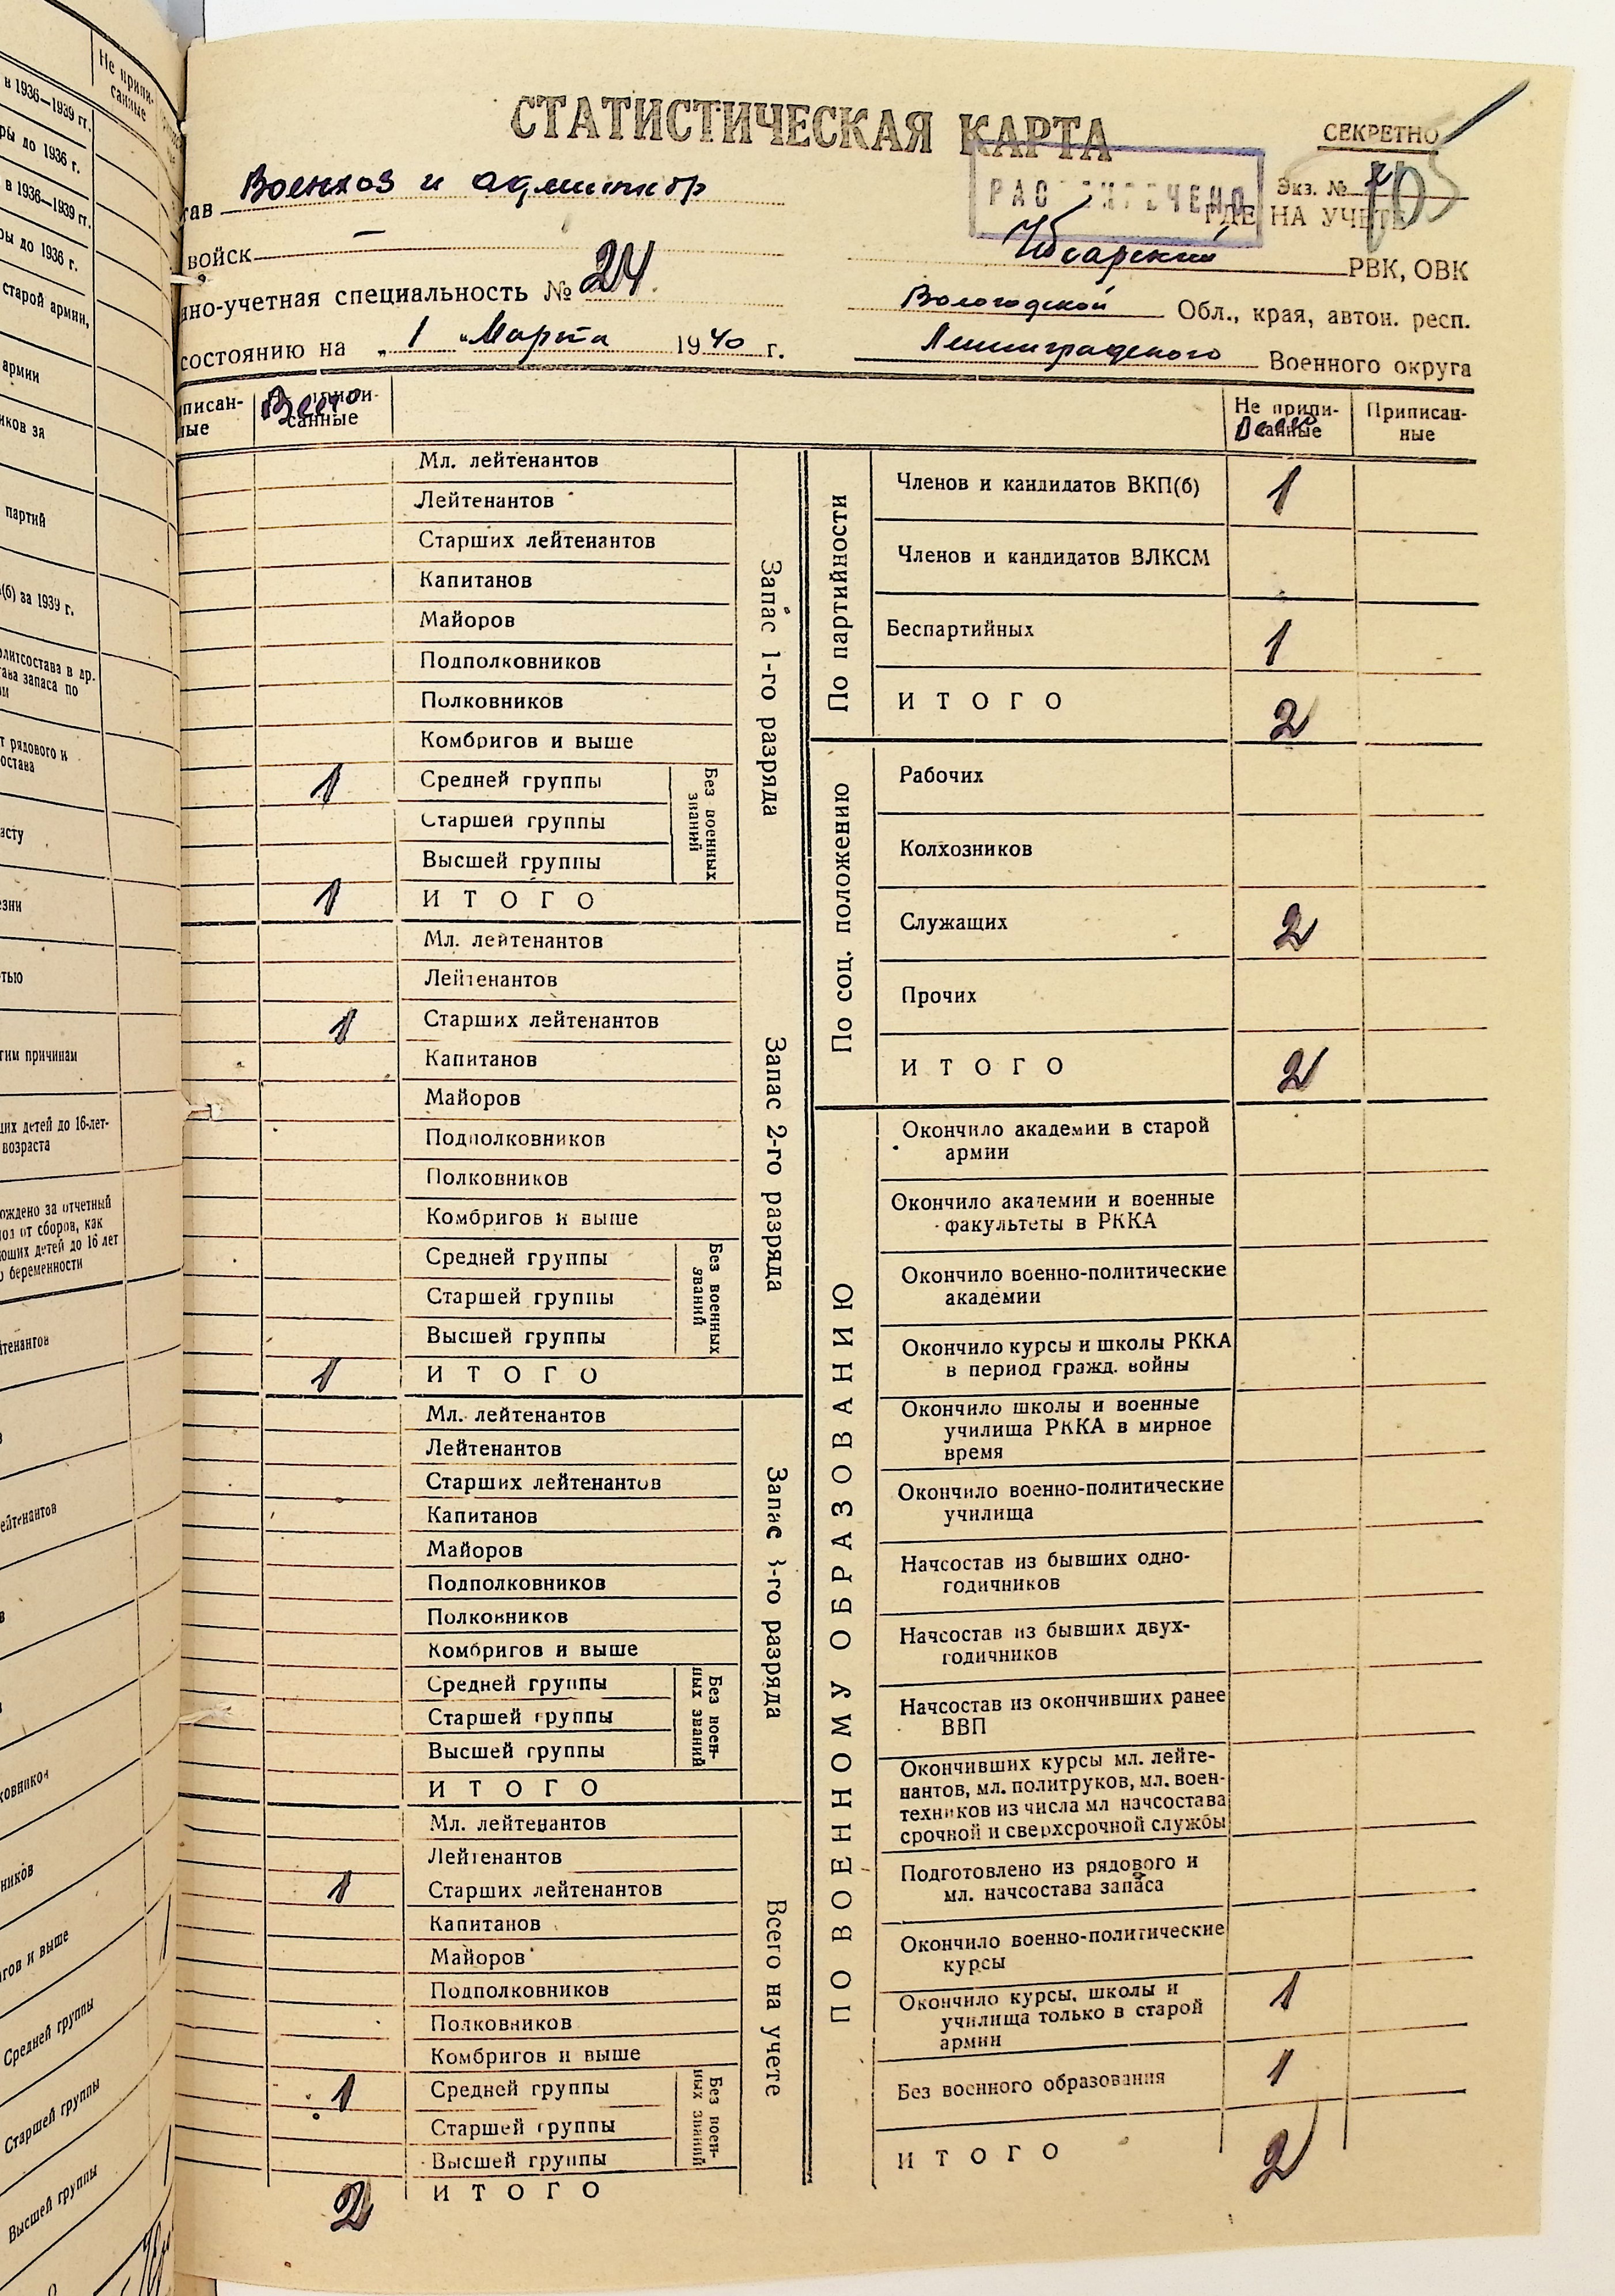 СТАТИСТИЧЕСКАЯ КАРТА
СЕКРЕТНО
Экз. №
РАССЕКРЕЧЕНО
ГДЕ НА УЧЕТЕ
тав Военхоз и админ
войск —
нно-учетная специальность № 24
состоянию на „1" Марта 1940 г.
РВК, ОВК
Вологодской Обл., края, автон. респ.
Ленинградского Военного округа
писан-
ные
Не припи-
санные
Всего
Не припи-
санные
Всего
Приписан-
ные
Запас 1-го разряда
Мл. лейтенантов
Лейтенантов
Старших лейтенантов
Капитанов
Майоров
Подполковников
Полковников
Комбригов и выше
Без военных званий
1 Средней группы
Старшей группы
Высшей группы
1 ИТОГО
Запас 2-го разряда
Мл. лейтенантов
Лейтенантов
1 Старших лейтенантов
Капитанов
Майоров
Подполковников
Полковников
Комбригов и выше
Без военных званий
Средней группы
Старшей группы
Высшей группы
1 ИТОГО
Запас 3-го разряда
Мл. лейтенантов
Лейтенантов
Старших лейтенантов
Капитанов
Майоров
Подполковников
Полковников
Комбригов и выше
Без воен-
ных званий
Средней группы
Старшей группы
Высшей группы
ИТОГО
Всего на учете
Мл. лейтенантов
Лейтенантов
1 Старших лейтенантов
Капитанов
Майоров
Подполковников
Полковников
Комбригов и выше
Без воен-
ных званий
1 Средней группы
Старшей группы
Высшей группы
2 ИТОГО
По партийности
Членов и кандидатов ВКП(б) 1
Членов и кандидатов ВЛКСМ
Беспартийных 1
ИТОГО 2
По соц. положению
Рабочих
Колхозников
Служащих 2
Прочих
ИТОГО 2
ПО ВОЕННОМУ ОБРАЗОВАНИЮ
Окончило академии в старой
армии
Окончило академии и военные
факультеты в РККА
Окончило военно-политические
академии
Окончило курсы и школы РККА
в период гражд. войны
Окончило школы и военные
училища РККА в мирное
время
Окончило военно-политические
училища
Начсостав из бывших одно-
годичников
Начсостав из бывших двух-
годичников
Начсостав из окончивших ранее
ВВП
Окончивших курсы мл. лейте-
нантов, мл. политруков, мл. воен-
техников из числа мл начсостава
срочной и сверхсрочной службы
Подготовлено из рядового и
мл. начсостава запаса
Окончило военно-политические
курсы
Окончило курсы, школы и
училища только в старой
армии 1
Без военного образования 1
ИТОГО 2
Не припи-
санные
в 1936—1939 гг.
ры до 1936 г.
в 1936—1939 гг.
ры до 1936 г.
старой армии,
армии
иков за
партий
(б) за 1939 г.
олитсостава в др.
тава запаса по
т рядового и
остава
асту
езни
тью
гим причинам
щих детей до 16-лет-
возраста
ождено за отчетный
иод от сборов, как
ющих детей до 16 лет
о беременности
йтенантов
ейтенантов
ковников
ников
гов и выше
Средней группы
Старшей группы
Высшей группы